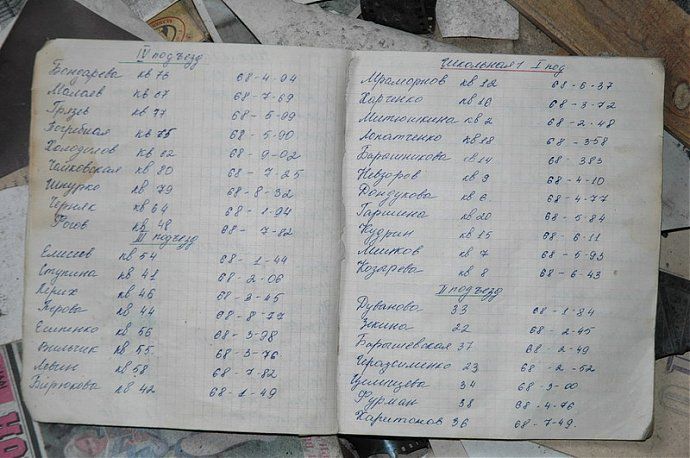 IV подъезд
Бондарева кв 76 68-4-04
Малаев кв 67 68-7-69
Грязев кв 77 68-5-09
Погребная кв 75 68-5-90
Холодилов кв 62 68-9-02
Чайковская кв 80 68-7-25
Шкурко кв 79 68-8-32
Черняк кв 64 68-1-94
Рогов кв 48 68-7-82
III подъезд
Елисеев кв 54 68-1-44
Ступина кв 41 68-2-06
кв 46 68-3-45
Перова кв 44 68-8-77
Есипенко кв 56 68-3-98
Вильчик кв 55 68-3-76
Левин кв 58 68-7-82
Бирюкова кв 42 68-1-49
Школьная 1 I под
Мраморнов кв 12 68-6-37
Харченко кв 16 68-3-72
Митюшкина кв 2 68-2-48
Лопатченко кв 18 68-358
Барашникова кв 14 68-383
Невзоров кв 9 68-4-10
Дондукова кв 6 68-4-77
Гаршина кв 20 68-5-84
Кудрин кв 15 68-6-11
кв 7 68-5-93
Козарева кв 8 68-6-43
II подъезд
Дуванова 33 68-1-84
Зенина 22 68-2-45
Барышевская 37 68-2-49
Герасименко 23 68-2-52
34 68-3-00
Фурман 38 68-4-76
Харитонов 36 68-7-49